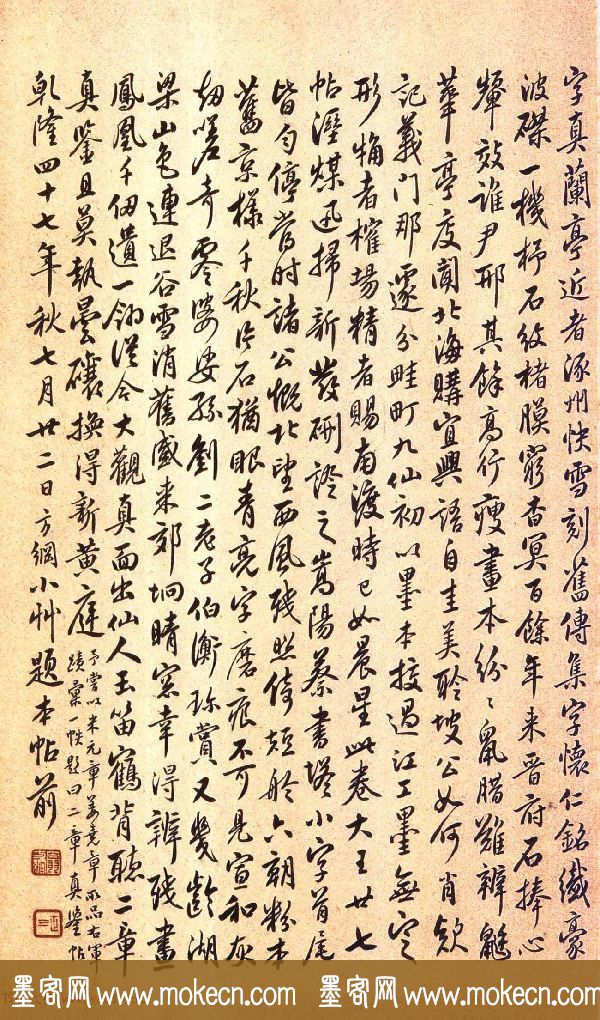 字真蘭亭近者涿州快雪刻舊傳集字懷仁銘纖豪
波磔一機杼石紋楮膜窮杳冥百餘年来晋府石捧心
顰效誰尹邢其餘高行瘦畫本紛〻鼠腊難辨
華亭度閣北海購宜興語自圭美聆坡公如何肖
記義門那遂分畦町九仙初以墨本授過江工墨無定
形犄者榷場精者賜南渡時已如晨星此卷大王廿七
帖瀋煤迅掃新發硎證之嵩陽蔡書塔小字首尾
皆匀停當時諸公慨北望西風殘照倚短於六朝粉本
舊京樣千秋片石猶眼青亮字磨痕不可見宣和灰
劫嗟奇零婆娑孫劉二老子伯衡珎賞又幾齡湖
梁山色連退谷雪消舊臧来郊坰晴窓幸得辨殘畫
鳳凰千仞遺一翎從今大觀真面出仙人玉笛鶴背聽二章
真鉴且莫執曇礦換得新黄庭
予嘗以米元章姜堯章所品右軍
蹟彙一帙題曰二章真鉴帖
乾隆四十七年秋七月廿二日方綱小艸題本帖前
墨客网 www.mokecn.com 墨客网 www.mokecn.com